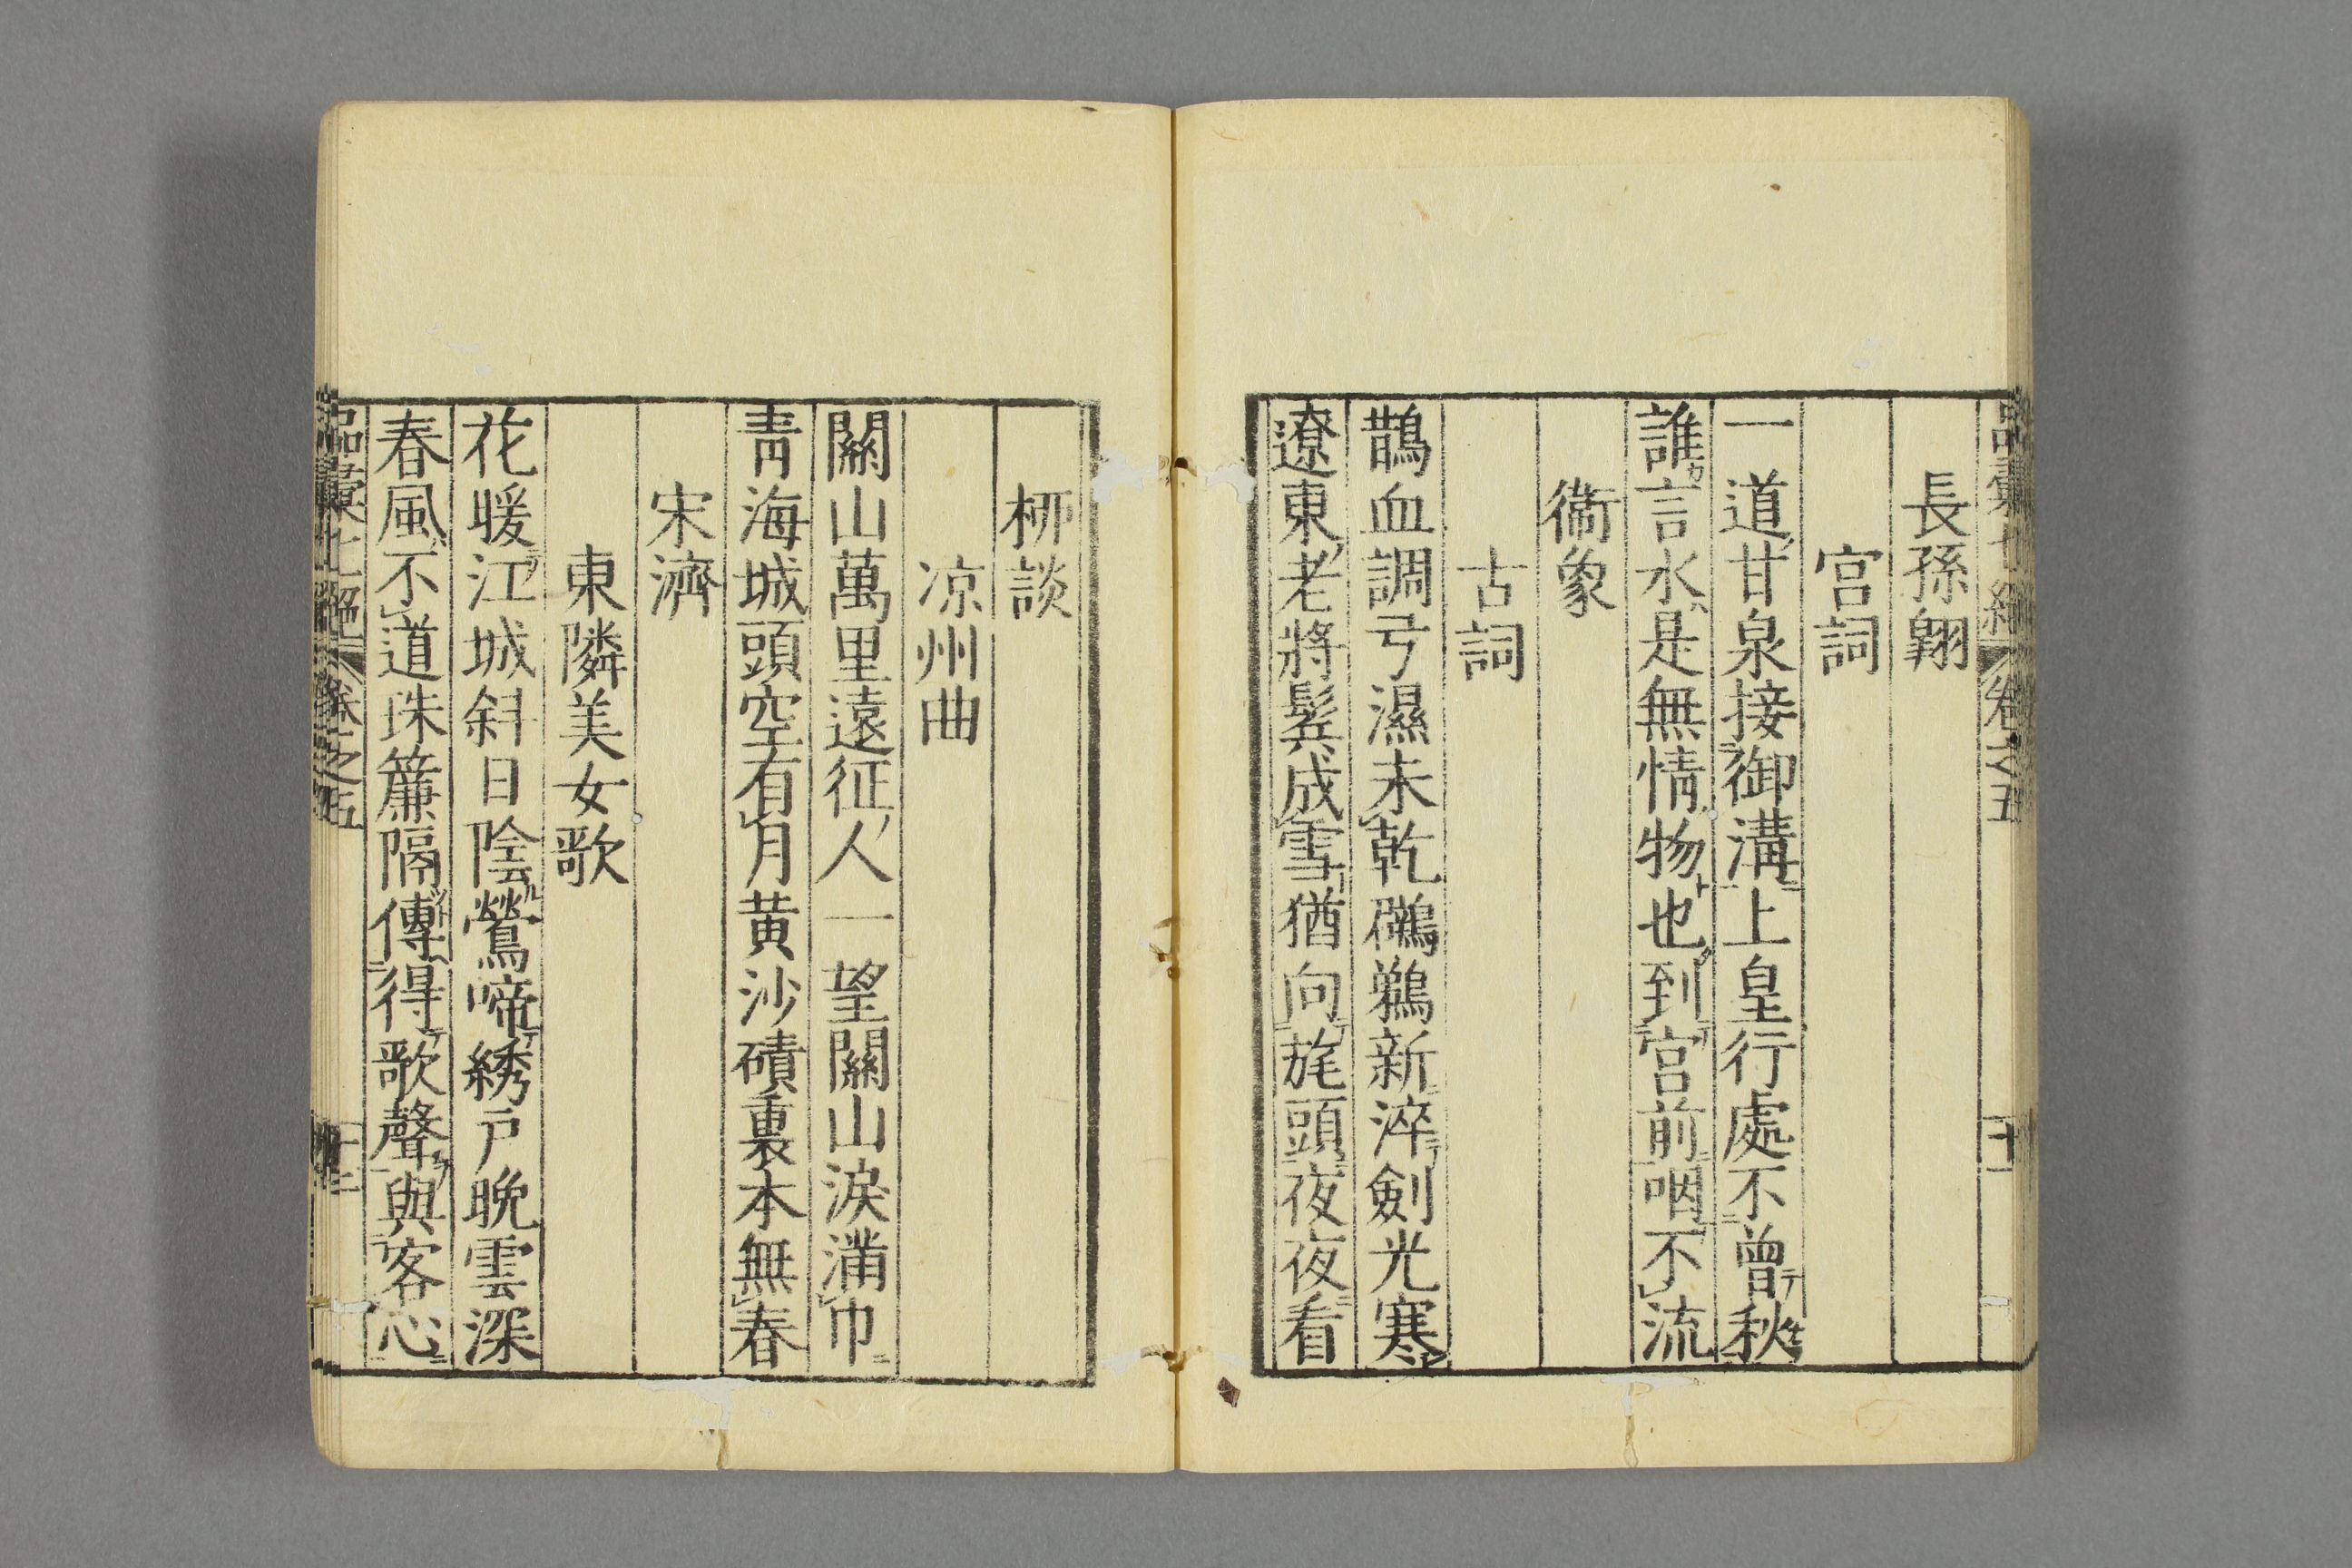 品彙七絶 卷之五 十一
長孫翱
宮詞
一道甘泉接御溝上皇行處不曾秋
誰言水是無情物也到宮前咽不流
衞象
古詞
鵲血調弓濕未乾鸊鵜新淬劍光寒
遼東老將鬂成雪猶向旄頭夜夜看
桺談
凉州曲
關山萬里遠征人一望關山淚滿巾
青海城頭空有月黃沙磧裏本無春
宋濟
東隣美女歌
花暖江城斜日陰鶯啼綉戸晩雲深
春風不道珠簾隔傳得歌聲與客心
品彙七絶 卷之五 十二